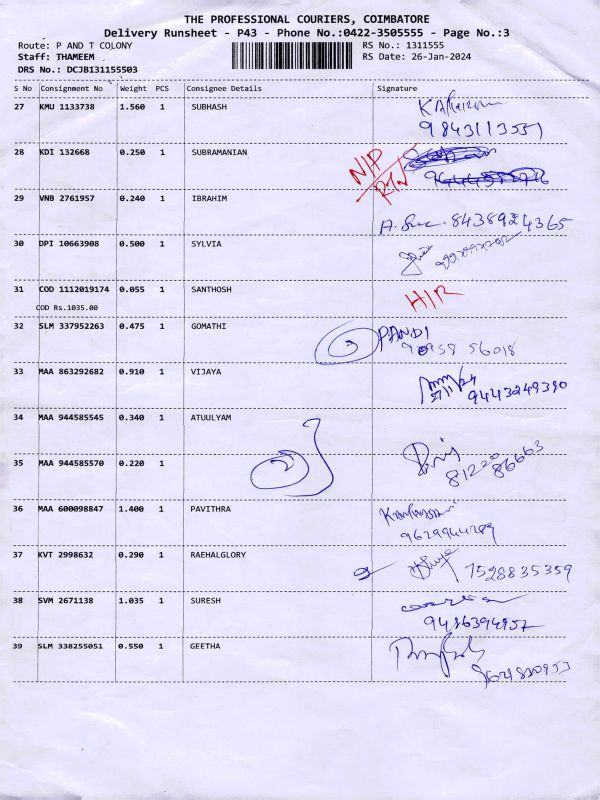 THE PROFESSIONAL COURIERS, COIMBATORE
Delivery Runsheet - P43 - Phone No.:0422-3505555 - Page No.:3
Route: P AND T COLONY RS No.: 1311555
Staff: THAMEEM RS Date: 26-Jan-2024
DRS No.: DCJB131155503
S No Consignment No Weight PCS Consignee Details Signature
27 KMU 1133738 1.560 1 SUBHASH
9843113551
28 KDI 132668 0.250 1 SUBRAMANIAN NIP
RTN
29 VNB 2761957 0.240 1 IBRAHIM
8438924365
30 DPI 10663908 0.500 1 SYLVIA
31 COD 1112019174 0.055 1 SANTHOSH HIR
COD Rs.1035.00
32 SLM 337952263 0.475 1 GOMATHI PANDI
56018
33 MAA 863292682 0.910 1 VIJAYA
9443249390
34 MAA 944585545 0.340 1 ATUULYAM
35 MAA 944585570 0.220 1
81220 86663
36 MAA 600098847 1.400 1 PAVITHRA
37 KVT 2998632 0.290 1 RAEHALGLORY
7528835359
38 SVM 2671138 1.035 1 SURESH
9486394957
39 SLM 338255051 0.550 1 GEETHA